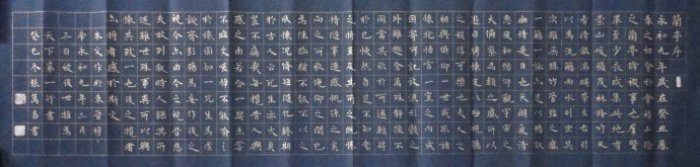 蘭亭序
永和九年歲在癸丑暮
春之初會于會稽山陰
之蘭亭修禊事也群賢
畢至少長咸集此地有
崇山峻領茂林脩竹又
有清流激湍映帶左右引
以為流觴曲水列坐其
次雖無絲竹管弦之盛
一觴一詠亦足以暢敘
幽情是日也天朗氣清
惠風和暢仰觀宇宙之
大俯察品類之盛所以
遊目騁懷足以極視聽
之娛信可樂也夫人之
相與俯仰一世或取諸
懷抱悟言一室之內或
因寄所託放浪形骸之
外雖趣舍萬殊靜躁不
同當其欣於所遇暫得
於己快然自足不知老
之將至及其所之既倦
情隨事遷感慨係之矣
向之所欣俛仰之間已
為陳跡猶不能不以之
興懷況脩短隨化終期
於盡古人云死生亦大矣
豈不痛哉每攬昔人興
感之由若合一契未嘗
不臨文嗟悼不能喻之
於懷固知一死生為虛
誕齊彭殤為妄作後之
視今亦由今之視昔悲
夫故列敘時人錄其所
述雖世殊事異所以興
懷其致一也後之攬者
亦將有感於斯文
本文作於東晉穆
帝永和九年三月
天下第一行書
癸巳冬張萬書